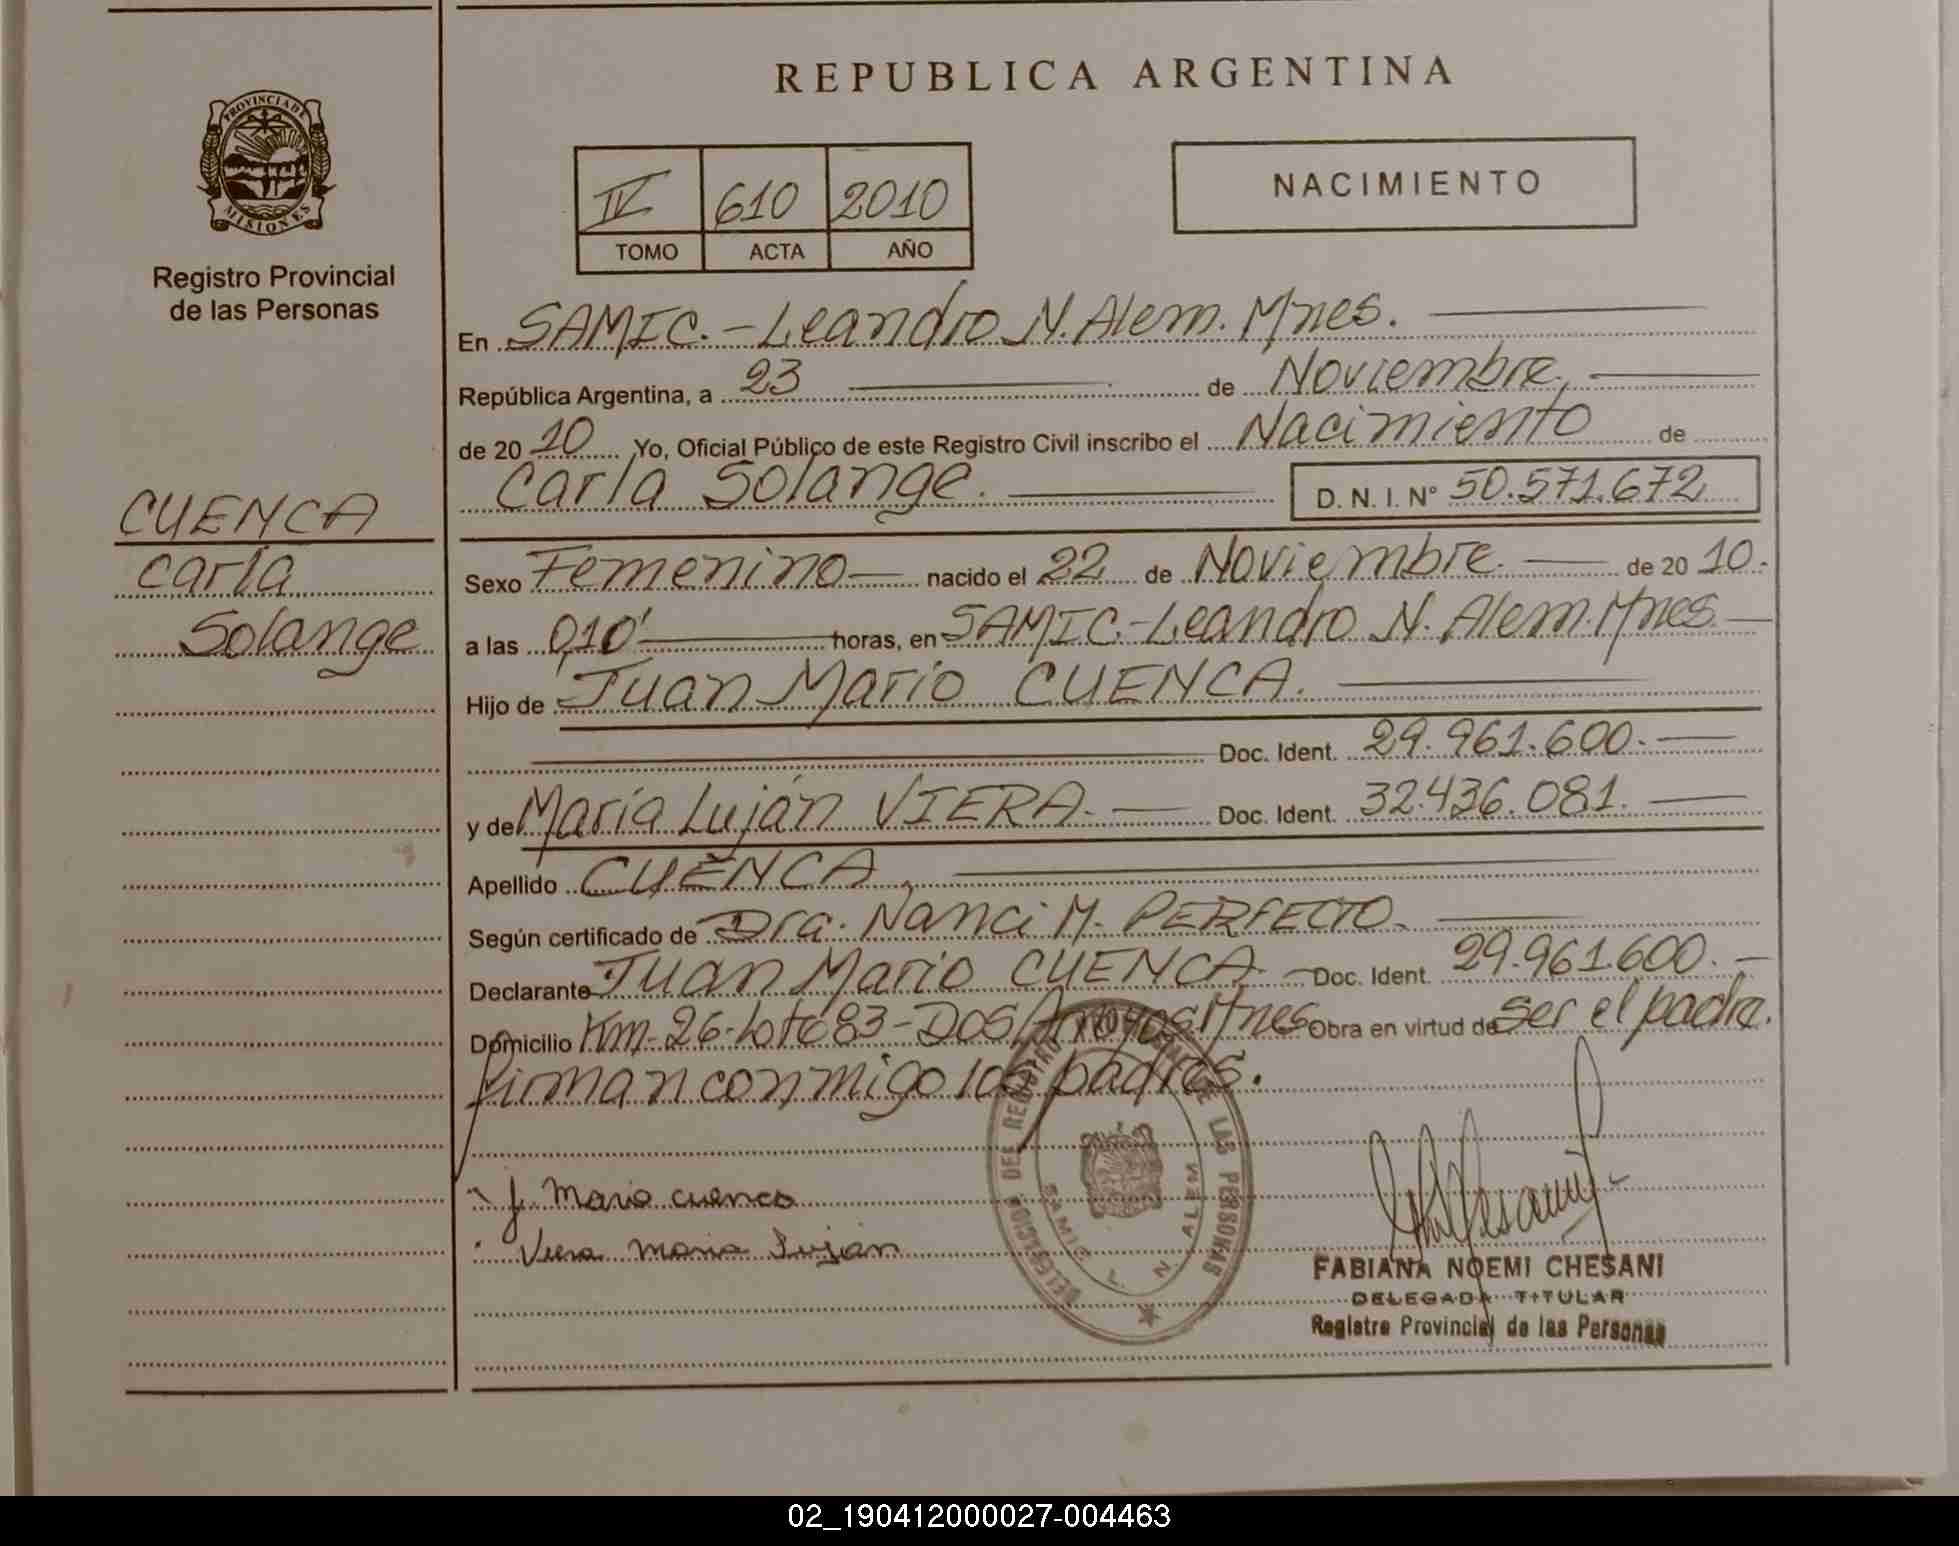 REPUBLICA ARGENTINA
PROVINCIA DE
MISIONES
Registro Provincial
de las Personas
IV 610 2010
TOMO ACTA AÑO
NACIMIENTO
En SAMIC.-Leandro N. Alem. Mnes.
República Argentina, a 23 de Noviembre,
de 2010 Yo, Oficial Público de este Registro Civil inscribo el Nacimiento de
Carla Solange. D. N. I. N° 50.571.672
CUENCA
Carla
Solange
Sexo Femenino nacido el 22 de Noviembre. de 2010.
a las 0,10' horas, en SAMIC.-Leandro N. Alem. Mnes.
Hijo de Juan Mario CUENCA.
Doc. Ident. 29.961.600.
y de María Luján VIERA. Doc. Ident. 32.436.081.
Apellido CUENCA
Según certificado de Dra. Nanci M. PERFECTO.
Declarante Juan Mario CUENCA Doc. Ident. 29.961.600.
Domicilio Km-26-Lote 83-DOS Arroyos Mnes Obra en virtud de ser el padre.
firman conmigo los padres.
J. Mario cuenca
Viera Maria Lujan
DELEGACION DEL REGISTRO PROVINCIAL DE LAS PERSONAS
SAMIC L. N. ALEM
FABIANA NOEMI CHESANI
DELEGADA TITULAR
Registro Provincial de las Personas
02_190412000027-004463